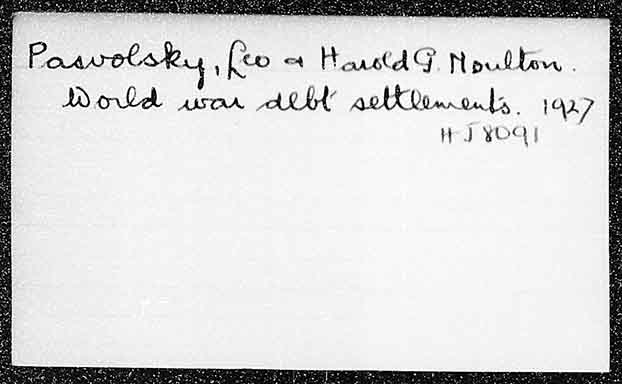 Pasvolsky, Leo & Harold G. Moulton.
World war debt settlements. 1927
HJ8091